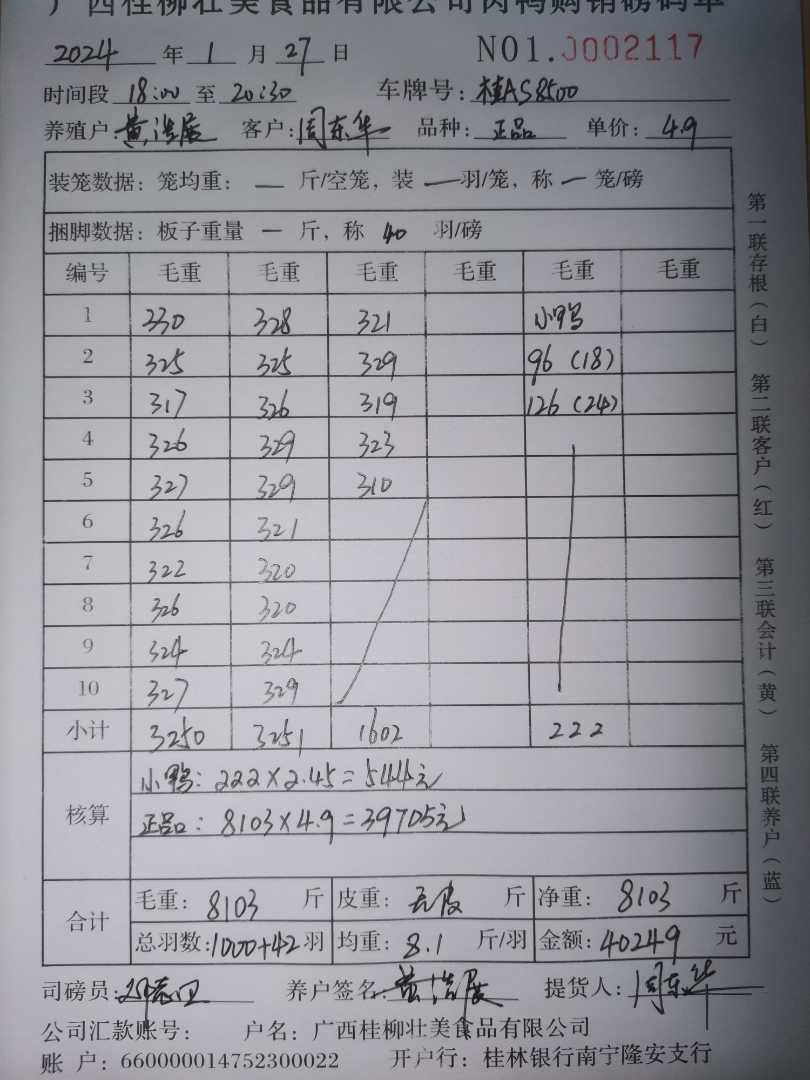 广西桂柳壮美食品有限公司肉鸭购销磅码单
2024 年 1 月 27 日 NO1.0002117
时间段 18:00 至 20:30 车牌号: 桂AS8500
养殖户 黄浩展 客户: 周东华 品种: 正品 单价: 4.9
装笼数据: 笼均重: — 斤/空笼, 装 — 羽/笼, 称 — 笼/磅
捆脚数据: 板子重量 — 斤, 称 40 羽/磅
编号 毛重 毛重 毛重 毛重 毛重 毛重
1 330 328 321 小鸭
2 325 325 329 96 (18)
3 317 326 319 126 (24)
4 326 329 323
5 327 329 310
6 326 321
7 322 320
8 326 320
9 324 324
10 327 329
小计 3250 3251 1602 222
核算
小鸭: 222×2.45=544元
正品: 8103×4.9=39705元
合计
毛重: 8103 斤 皮重: 无皮 斤 净重: 8103 斤
总羽数: 1000+42 羽 均重: 8.1 斤/羽 金额: 40249 元
司磅员: 养户签名: 黄浩展 提货人: 周东华
公司汇款账号: 户名: 广西桂柳壮美食品有限公司
账 户: 660000014752300022 开户行: 桂林银行南宁隆安支行
第一联存根(白) 第二联客户(红) 第三联会计(黄) 第四联养户(蓝)